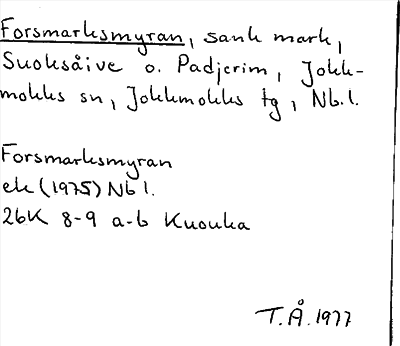 Forsmarksmyran, sank mark,
Suoksåive o. Padjerim, Jokk-
mokks sn, Jokkmokks tg, Nb.l.
Forsmarksmyran
ek (1975) Nb l.
26K 8-9 a-b Kuouka
T.Å. 1977